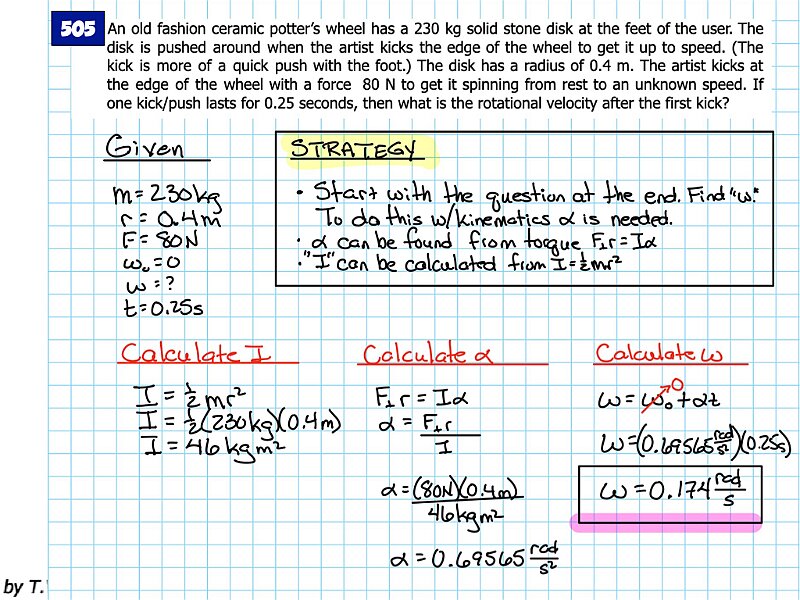 505
An old fashion ceramic potter's wheel has a 230 kg solid stone disk at the feet of the user. The
disk is pushed around when the artist kicks the edge of the wheel to get it up to speed. (The
kick is more of a quick push with the foot.) The disk has a radius of 0.4 m. The artist kicks at
the edge of the wheel with a force 80 N to get it spinning from rest to an unknown speed. If
one kick/push lasts for 0.25 seconds, then what is the rotational velocity after the first kick?
Given
m = 230kg
r = 0.4m
F = 80N
ω₀ = 0
ω = ?
t = 0.25s
STRATEGY
• Start with the question at the end. Find "ω."
To do this w/kinematics α is needed.
• α can be found from torque F⊥r = Iα
• "I" can be calculated from I = ½mr²
Calculate I
I = ½mr²
I = ½(230kg)(0.4m)
I = 46kgm²
Calculate α
F⊥r = Iα
α = F⊥r / I
α = (80N)(0.4m) / 46kgm²
α = 0.69565 rad/s²
Calculate ω
0
ω = ω₀ + αt
ω = (0.69565 rad/s²)(0.25s)
ω = 0.174 rad/s
by T.